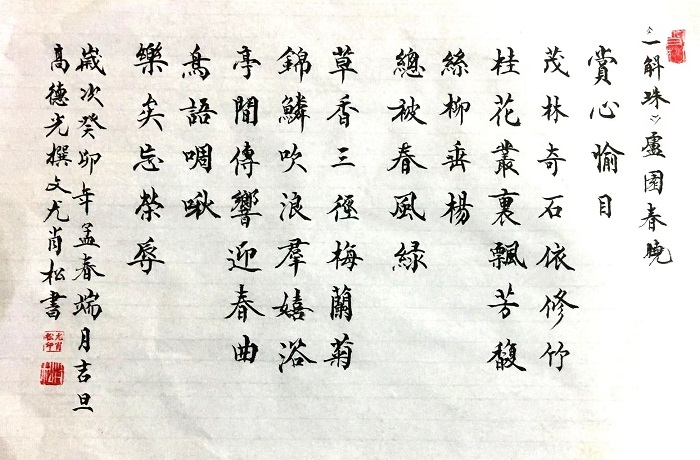 《一斛珠》盧园春曉
賞心愉目
茂林奇石依修竹
桂花叢裏飄芳馥
絲柳垂楊
總被春風緑
草香三徑梅蘭菊
錦鱗吹浪羣嬉浴
亭間傳響迎春曲
鳥語啁啾
樂矣忘榮辱
歲次癸卯年孟春端月吉旦
高德光撰文尤肖松書